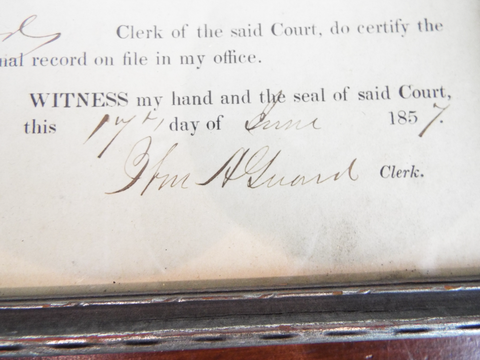 Clerk of the said Court, do certify the
nal record on file in my office.
WITNESS my hand and the seal of said Court,
this 17th, day of June 1857.
Wm H Guard Clerk.